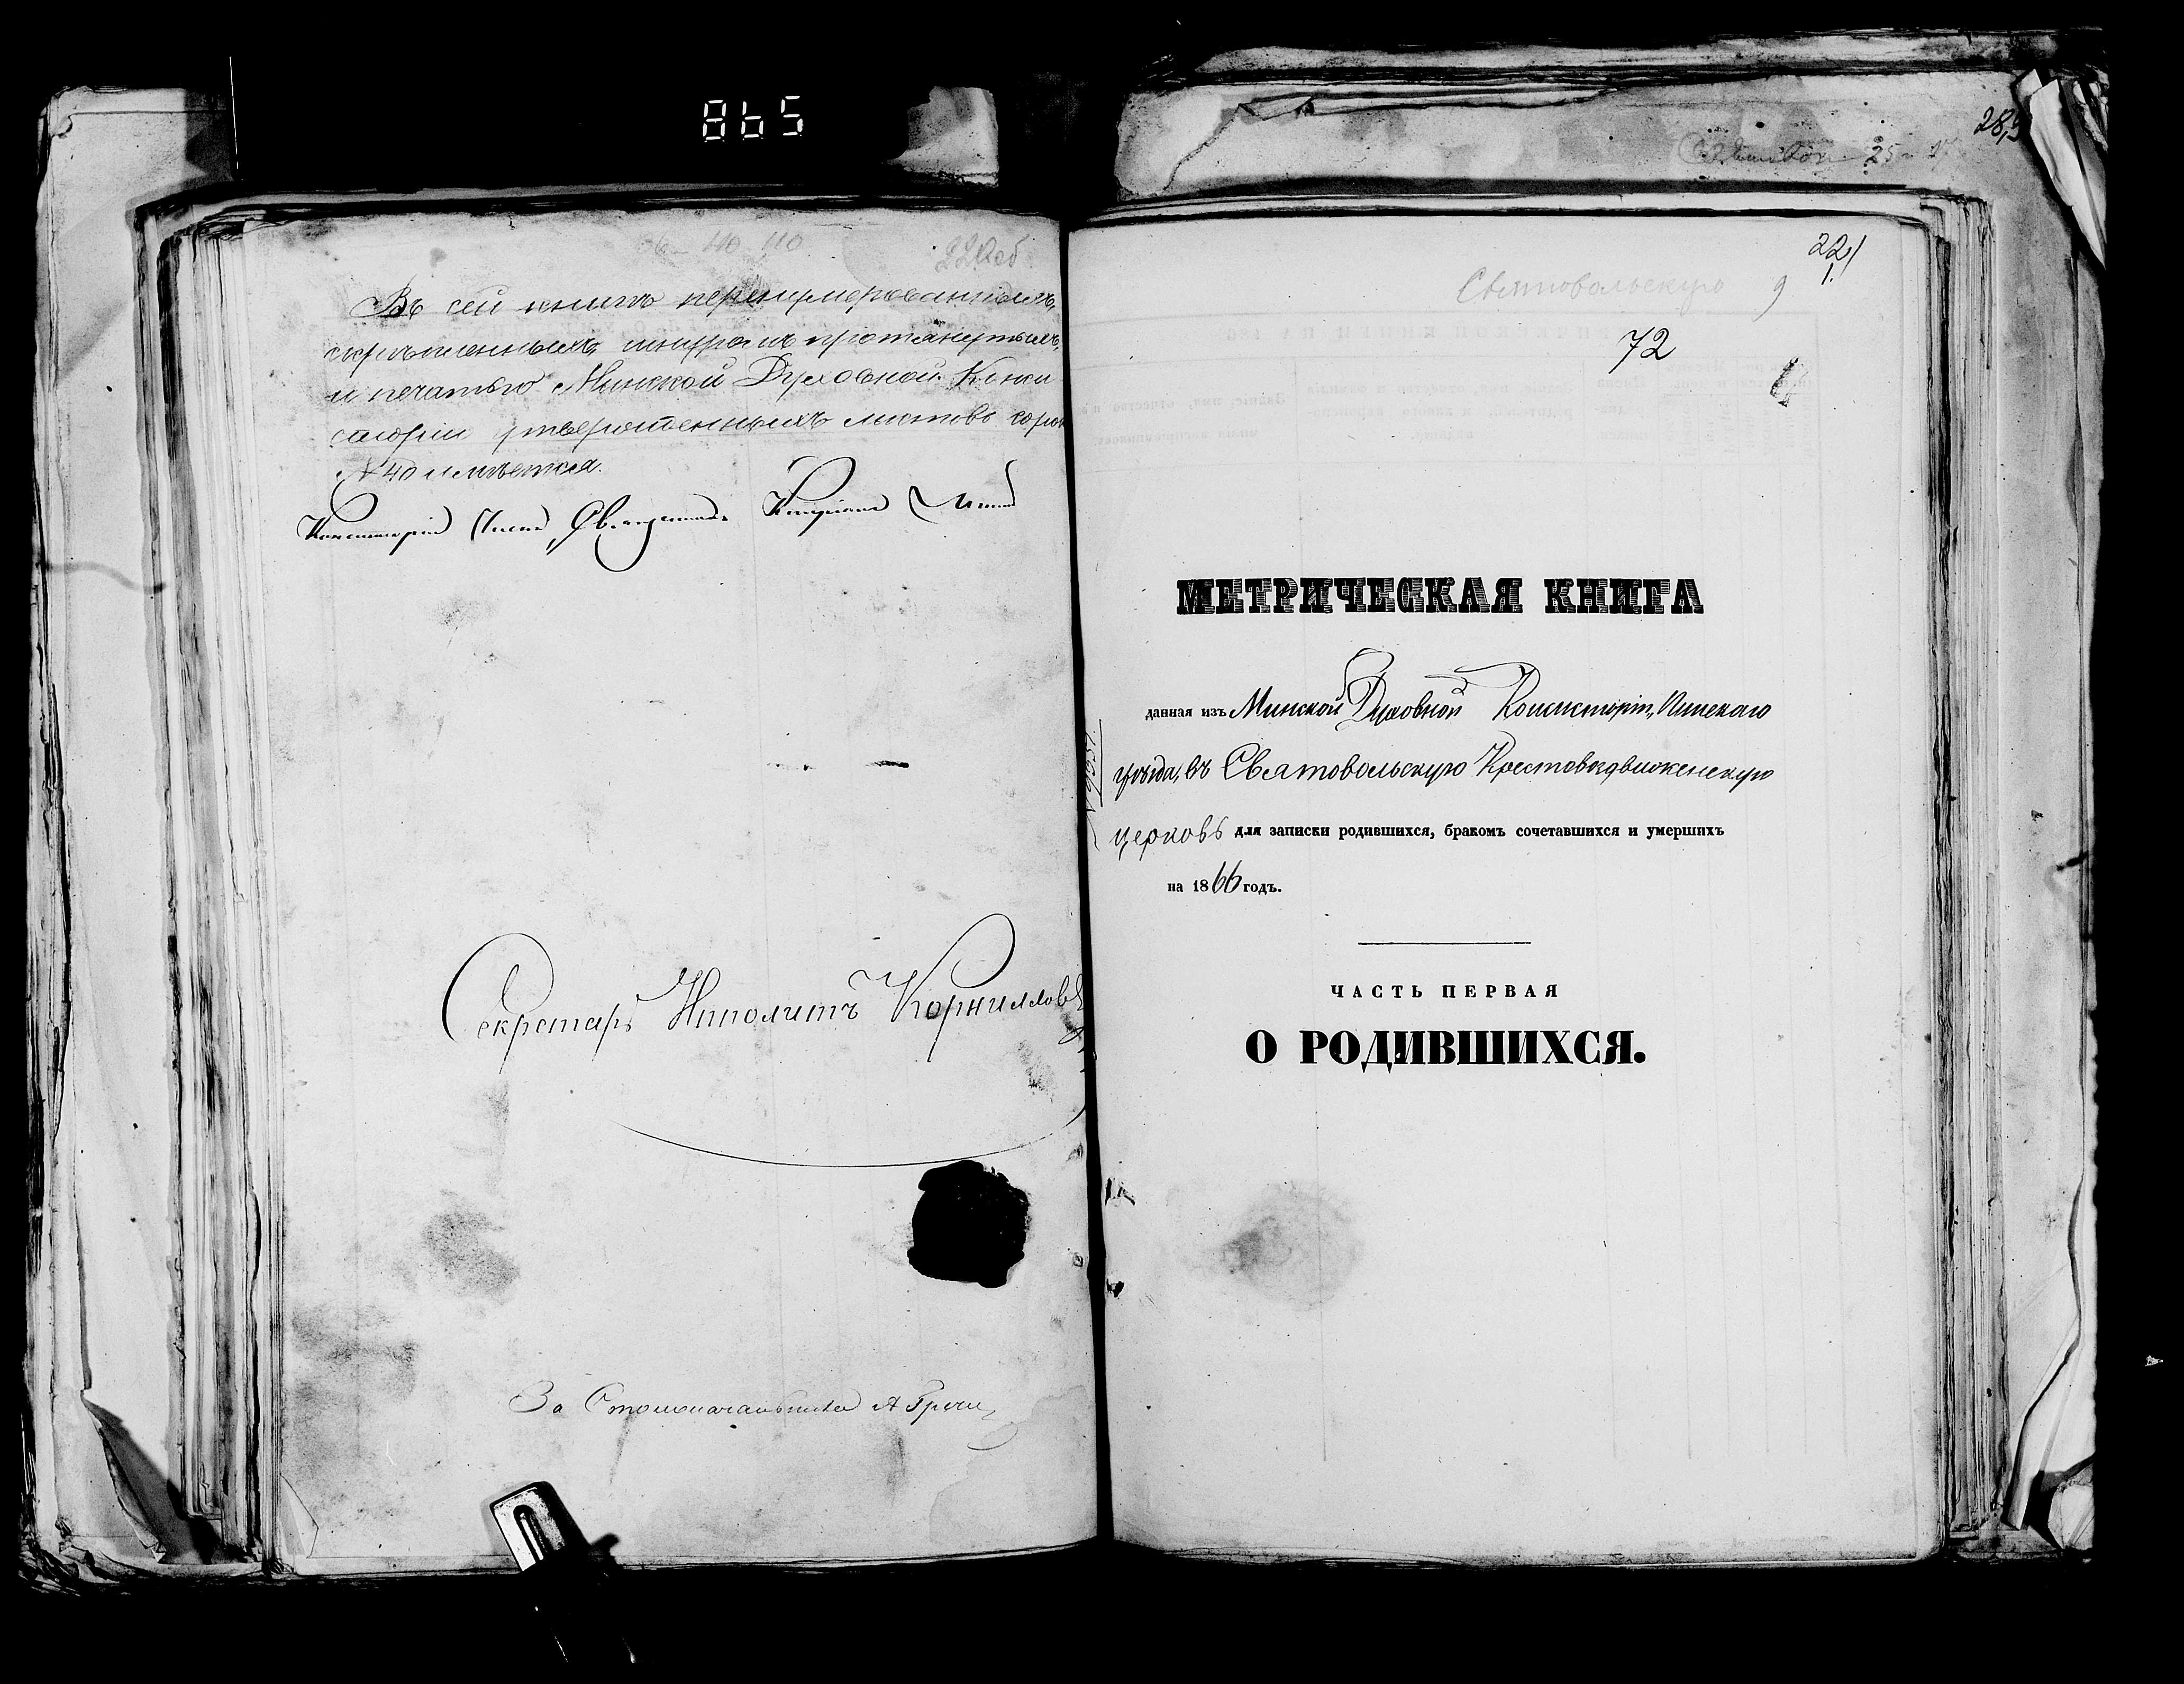 865
220об
Въ сей книгѣ перенумерованныхъ,
скрѣпленныхъ, шнуромъ протянутыхъ,
и печатью Минской Духовной Конси
сторіи утвержденныхъ листовъ сорок
№ 40 имѣется.
Консисторіи Членъ, Священникъ
Секретарь Ипполитъ Корниллов
За Столоначальника А
289
221
1.
Святовольскую 9
72
МЕТРИЧЕСКАЯ КНИГА
данная изъ Минской Духовной Консисторіи, Пинскаго
уѣзда, въ Святовольскую Крестовоздвиженскую
церковь для записки родившихся, бракомъ сочетавшихся и умершихъ
на 1866 годъ.
ЧАСТЬ ПЕРВАЯ
О РОДИВШИХСЯ.